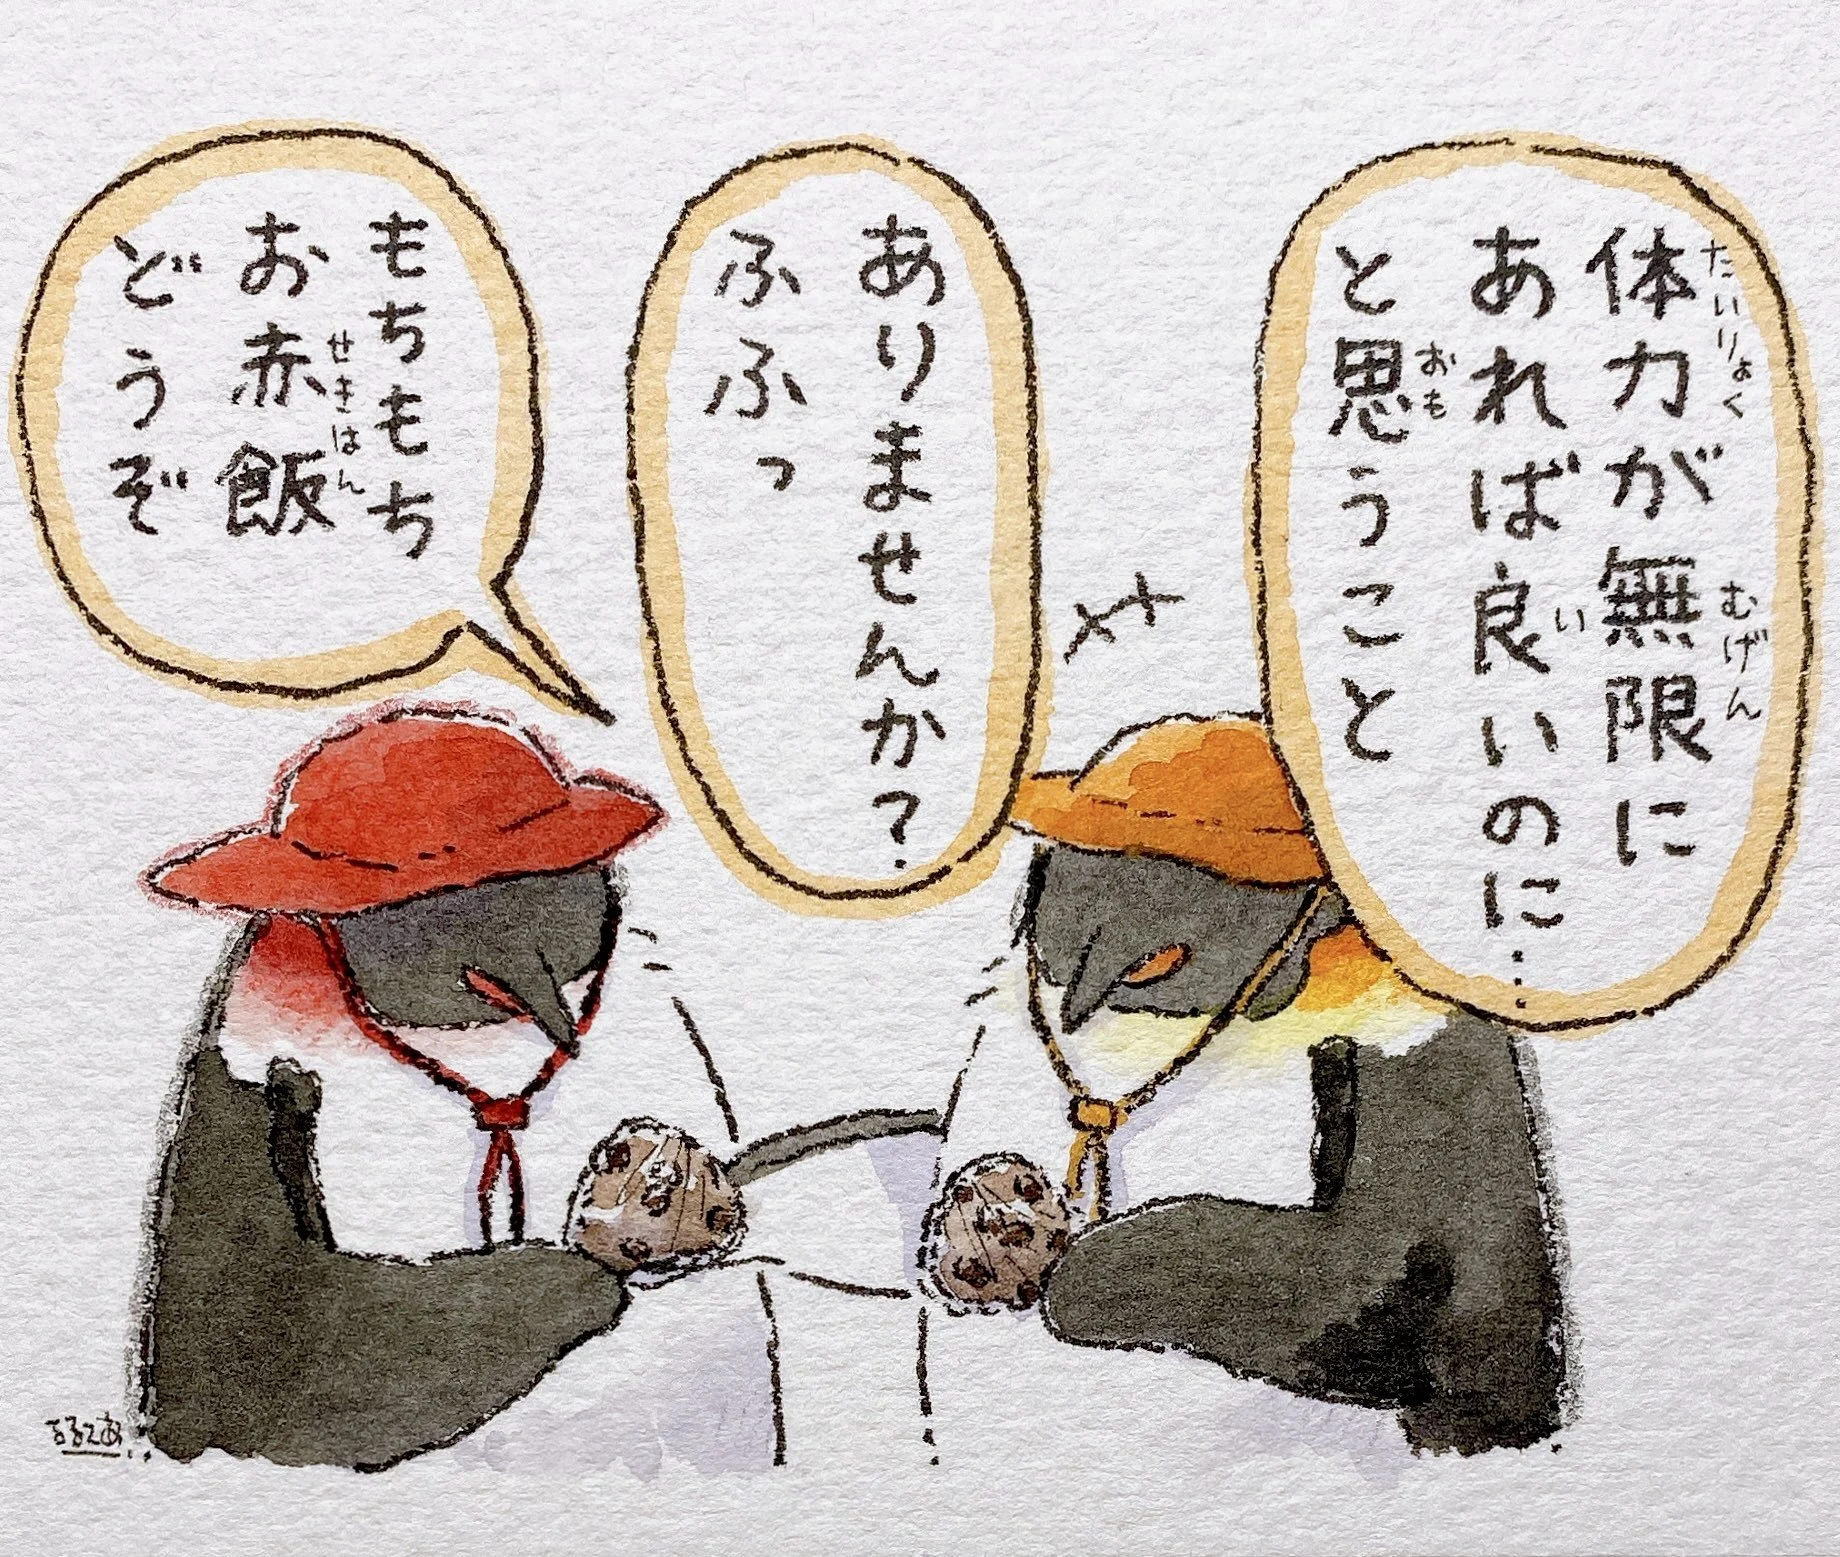 体力が無限に
たいりょく
むげん
あれば良いのに…
い
と思うこと
おも
ありませんか?
ふふふっ
もちもち
お赤飯
せきはん
どうぞ